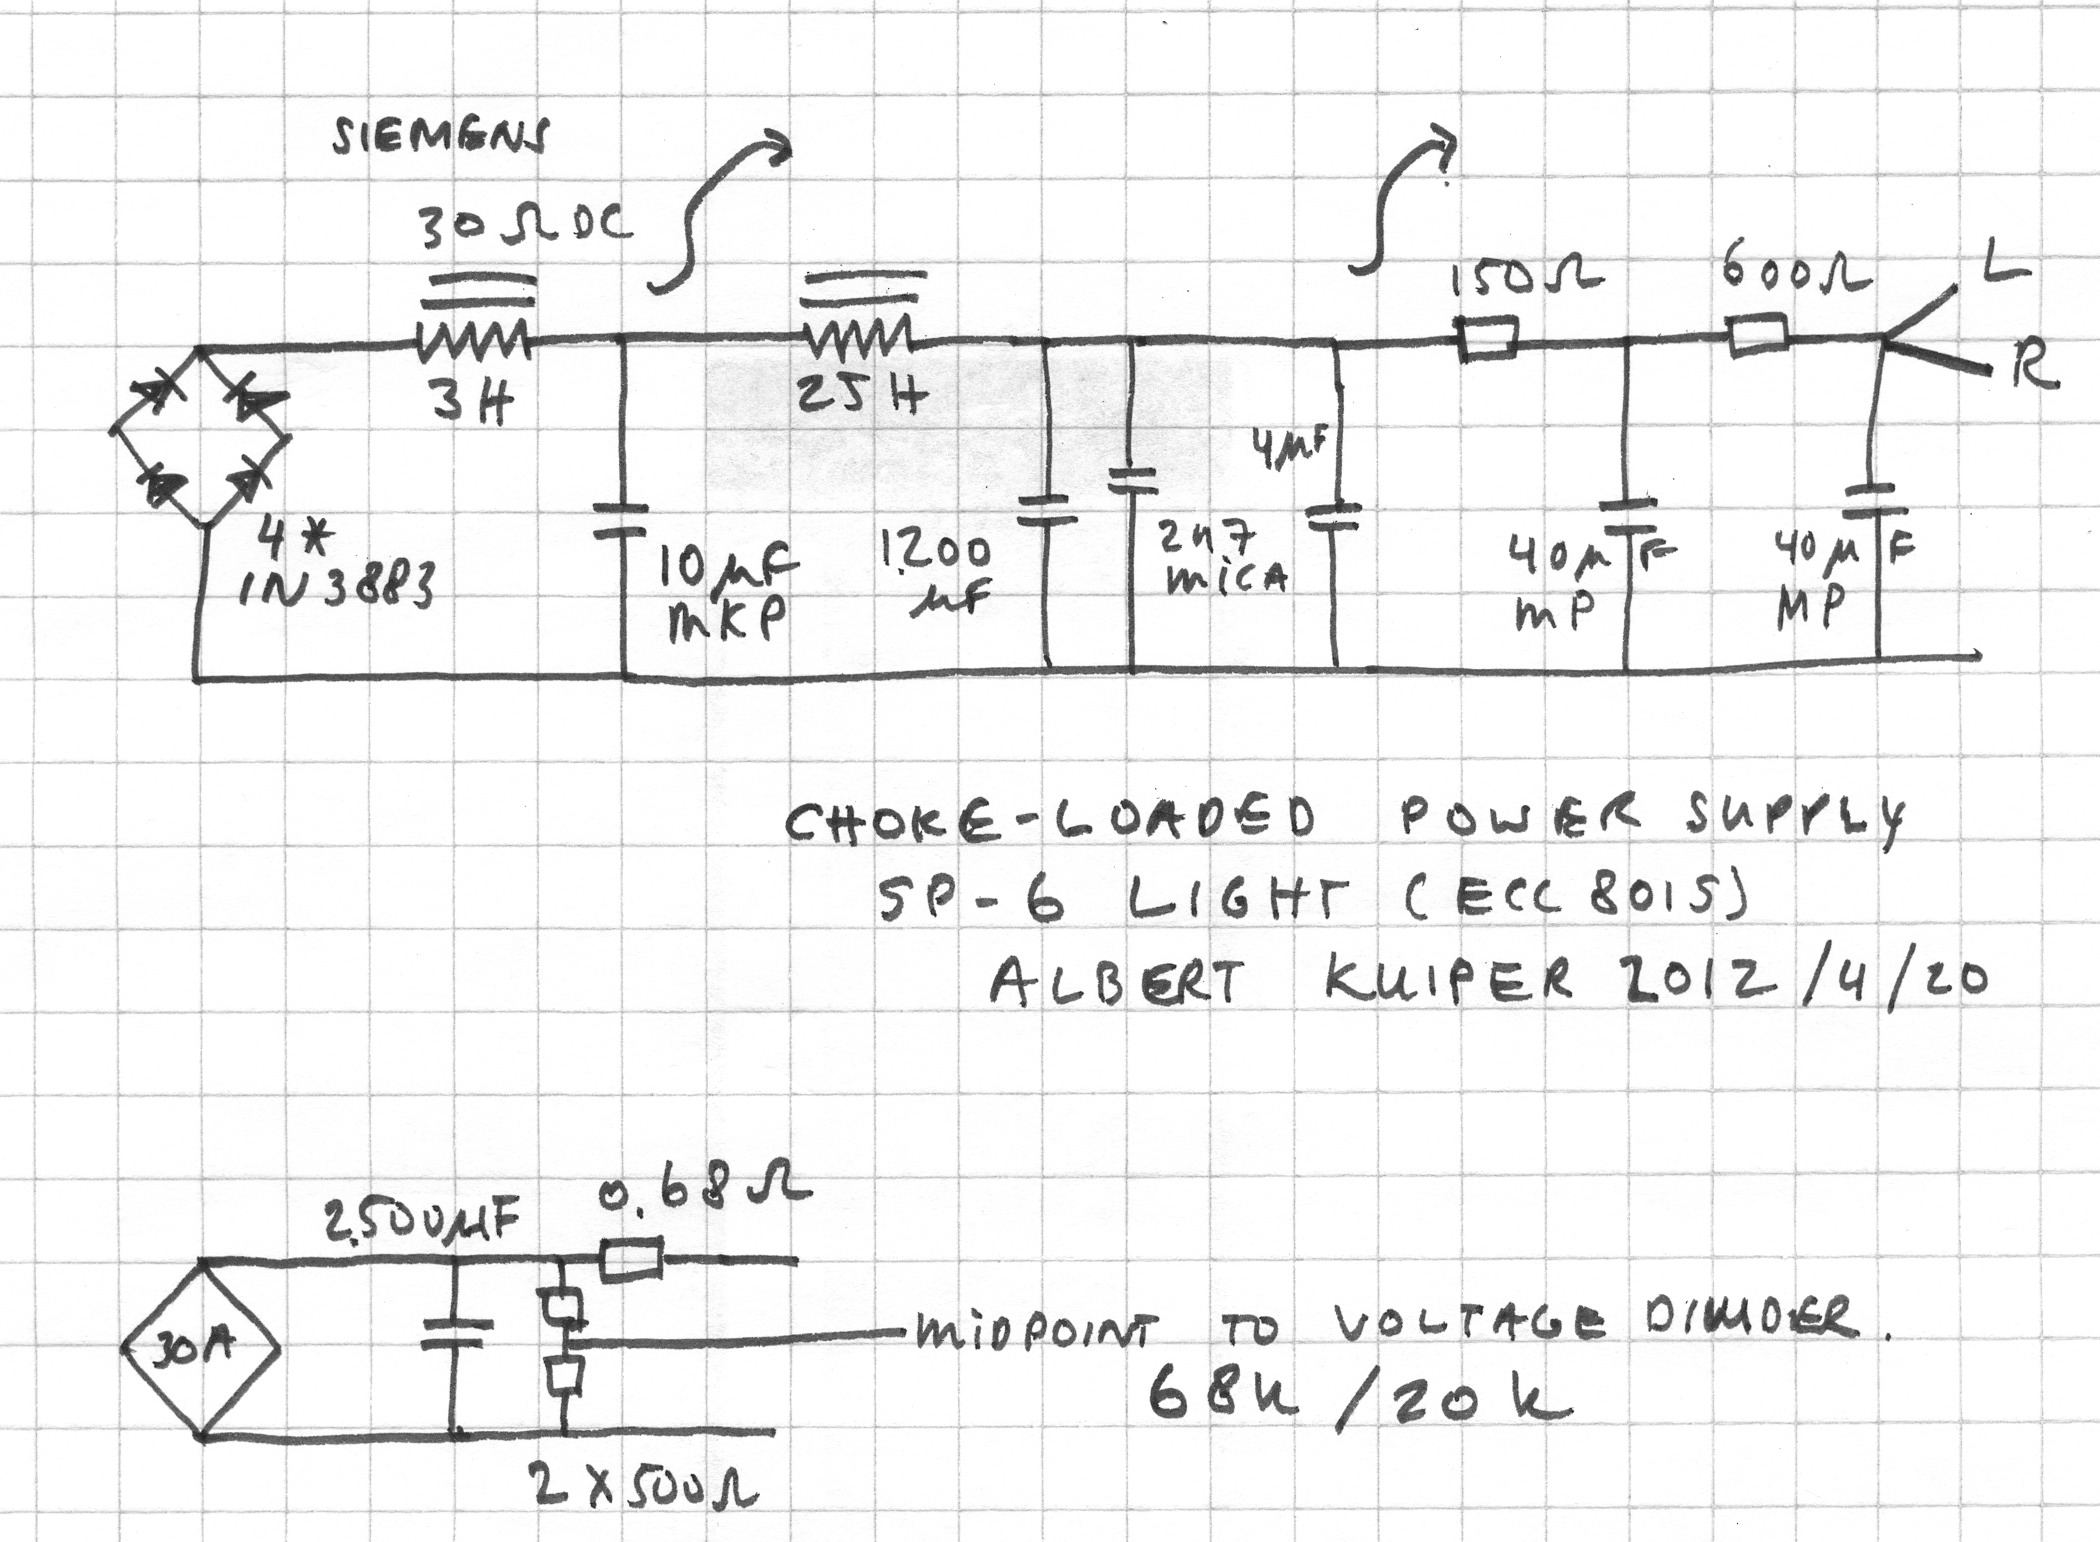 SIEMENS
30 Ω DC
3H
4*
1N3883
10 µF
MKP
25H
1.200
µF
2n7
MICA
4µF
150Ω
40µF
MP
600Ω
40µF
MP
L
R
CHOKE-LOADED POWER SUPPLY
SP-6 LIGHT (ECC 801S)
ALBERT KUIPER 2012/4/20
2.500µF
0.68Ω
30A
MIDPOINT TO VOLTAGE DIVIDER.
68k/20k
2X500Ω